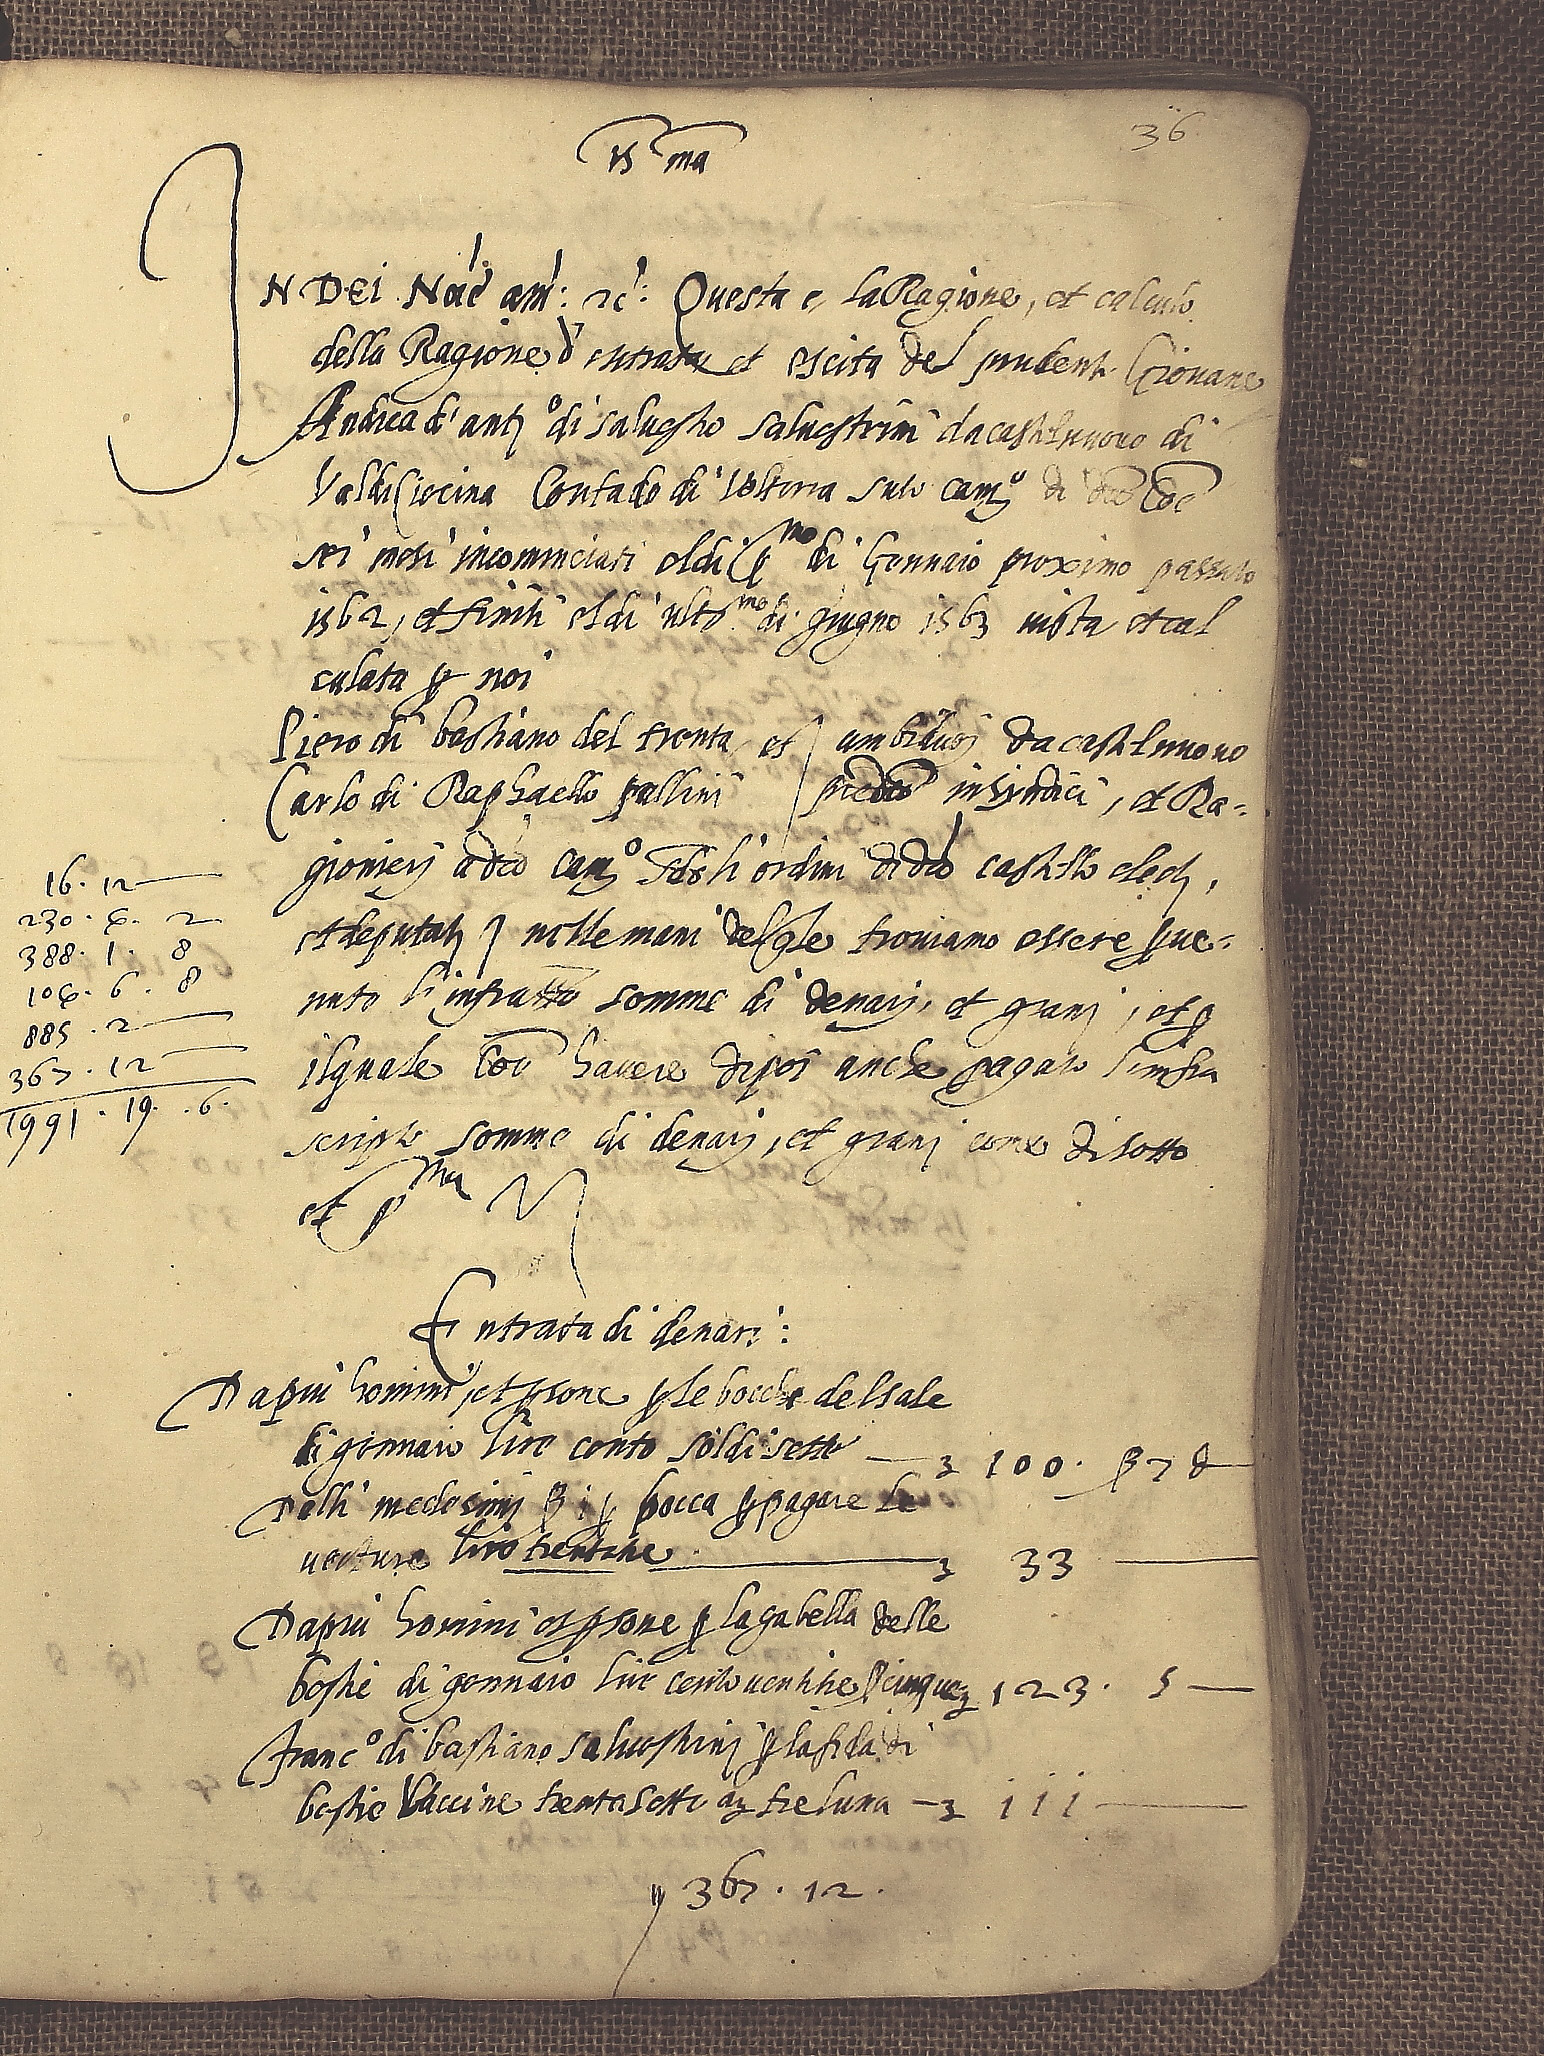 36
yhs ma
IN DEI Noie am: 2c: Questa e, la Ragione, et calculo
della Ragione d'entrata et escita del prudente Giovane
Andrea d'ant.o di salvestro salvestrini da castelnuovo di
Valdiciecina Contado di Volterra suto cam.o di d.o Coe
sei mesi incominciati el di p.mo di Gennaio proximo passato
1562, et finiti el di ult.mo di giugno 1563 vista et cal
culata p noi
Piero di bastiano del tronta, et
Carlo di Raphaello pallini
ambiduoj da castelnuovo
pred.o in sindici, et Ra=
gionierj a d.o cam.o s.do li ordini di d.o castello eletj,
et deputatj nelle mani del q.le troviamo essere perve=
nuto l'infra.tte somme di denarj, et granj, et p
il quale havere dipoi anche pagato l'infra
scripte somme di denarj, et granj come di sotto
et p.ma
16 · 12 —
230 · 6 · 2
388 · 1 · 8
106 · 6 · 8
885 · 2 —
367 · 12 —
1991 · 19 · 6 ·
Entrata di denari:
Da piu homini, et psone p le bocche del sale
di gennaio lire cento soldi sette — 100 · 7 8 —
Dalli medesimj p bocca p pagare le
vecture lire trentatre — 33 —
Da piu homini et psone p la gabella delle
bestie di gennaio lire cento ventitre cinque 123 · 5 —
franc.o di bastiano salvestrinj p la fida di
bestie vaccine trentasette a tre luna — 111 —
367 · 12 ·